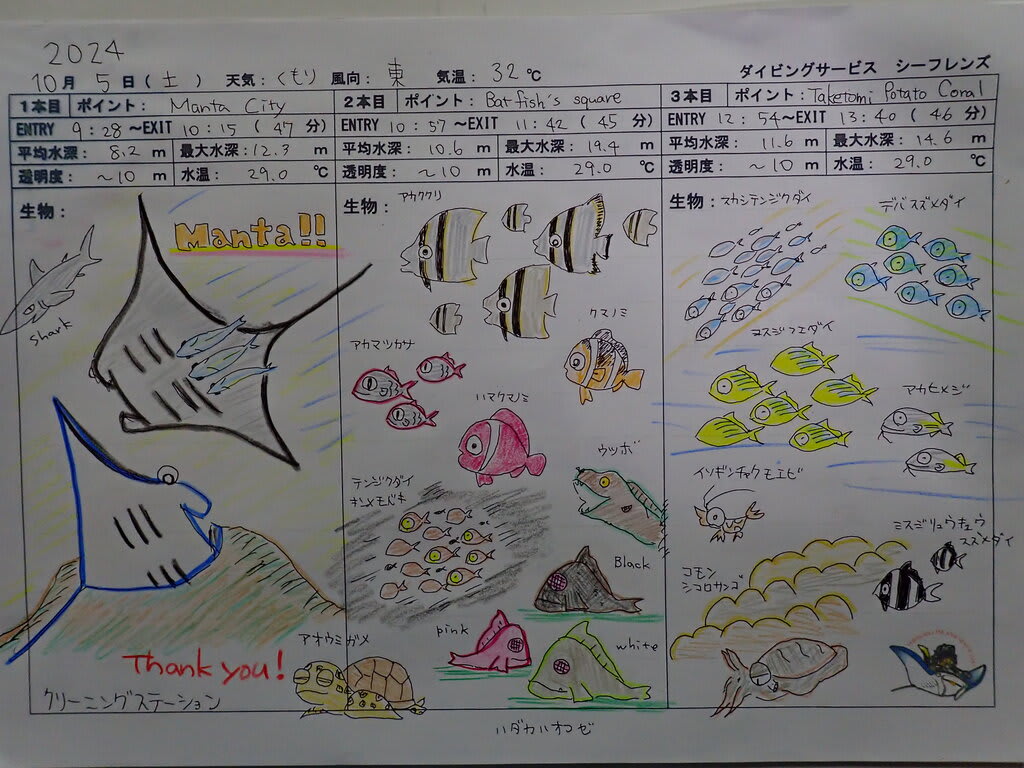 2024
10月 5日(土) 天気：くもり 風向：東 気温：32℃
ダイビングサービス シーフレンズ
1本目 ポイント： Manta City
ENTRY 9：28～EXIT 10：15 ( 47 分)
平均水深： 8.2 m 最大水深：12.3 m
透明度： ～10 m 水温： 29.0 ℃
生物：
Manta!!
shark
Thank you!
クリーニングステーション
アオウミガメ
2本目 ポイント： Batfish's square
ENTRY 10：57～EXIT 11：42 ( 45 分)
平均水深： 10.6 m 最大水深： 19.4 m
透明度： ～10 m 水温： 29.0 ℃
生物：
アカククリ
クマノミ
アカマツカサ
ハマクマノミ
ウツボ
テンジクダイ
キンメモドキ
Black
pink
white
ハダカハオコゼ
3本目 ポイント： Taketomi Potato Coral
ENTRY 12：54～EXIT 13：40 ( 46 分)
平均水深： 11.6 m 最大水深： 14.6 m
透明度： ～10 m 水温： 29.0 ℃
生物：
スカシテンジクダイ
デバスズメダイ
ヨスジフエダイ
アカヒメジ
イソギンチャクモエビ
ミスジリュウキュウ
スズメダイ
コモン
シコロサンゴ